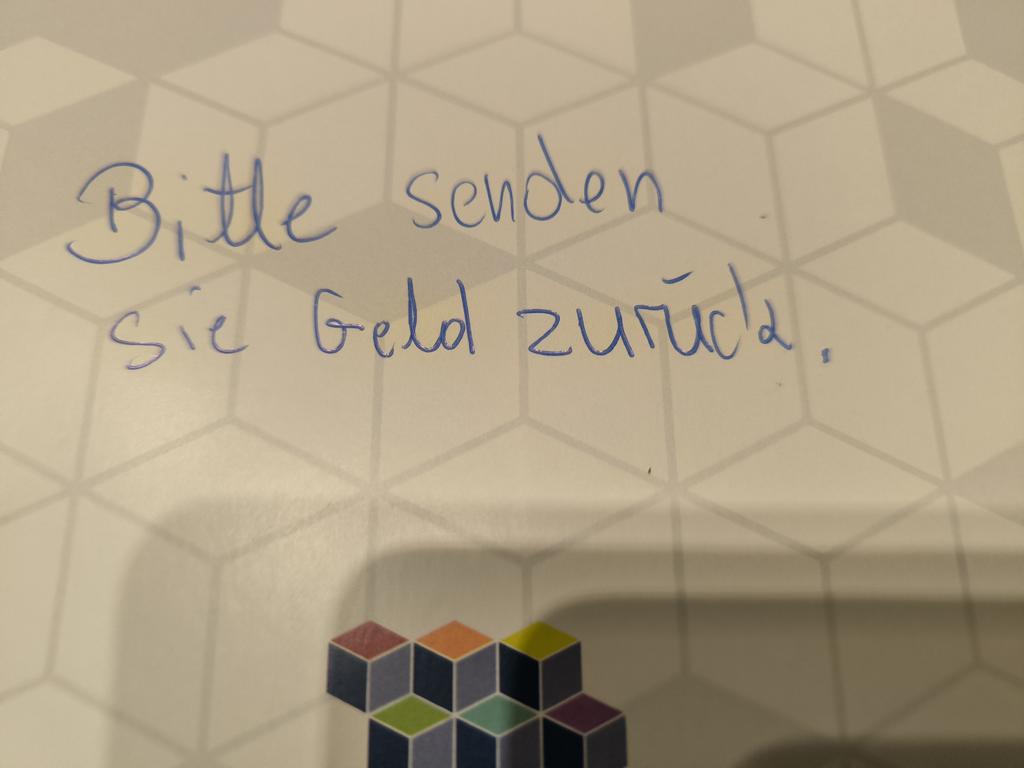 Bitte senden
sie Geld zurück.